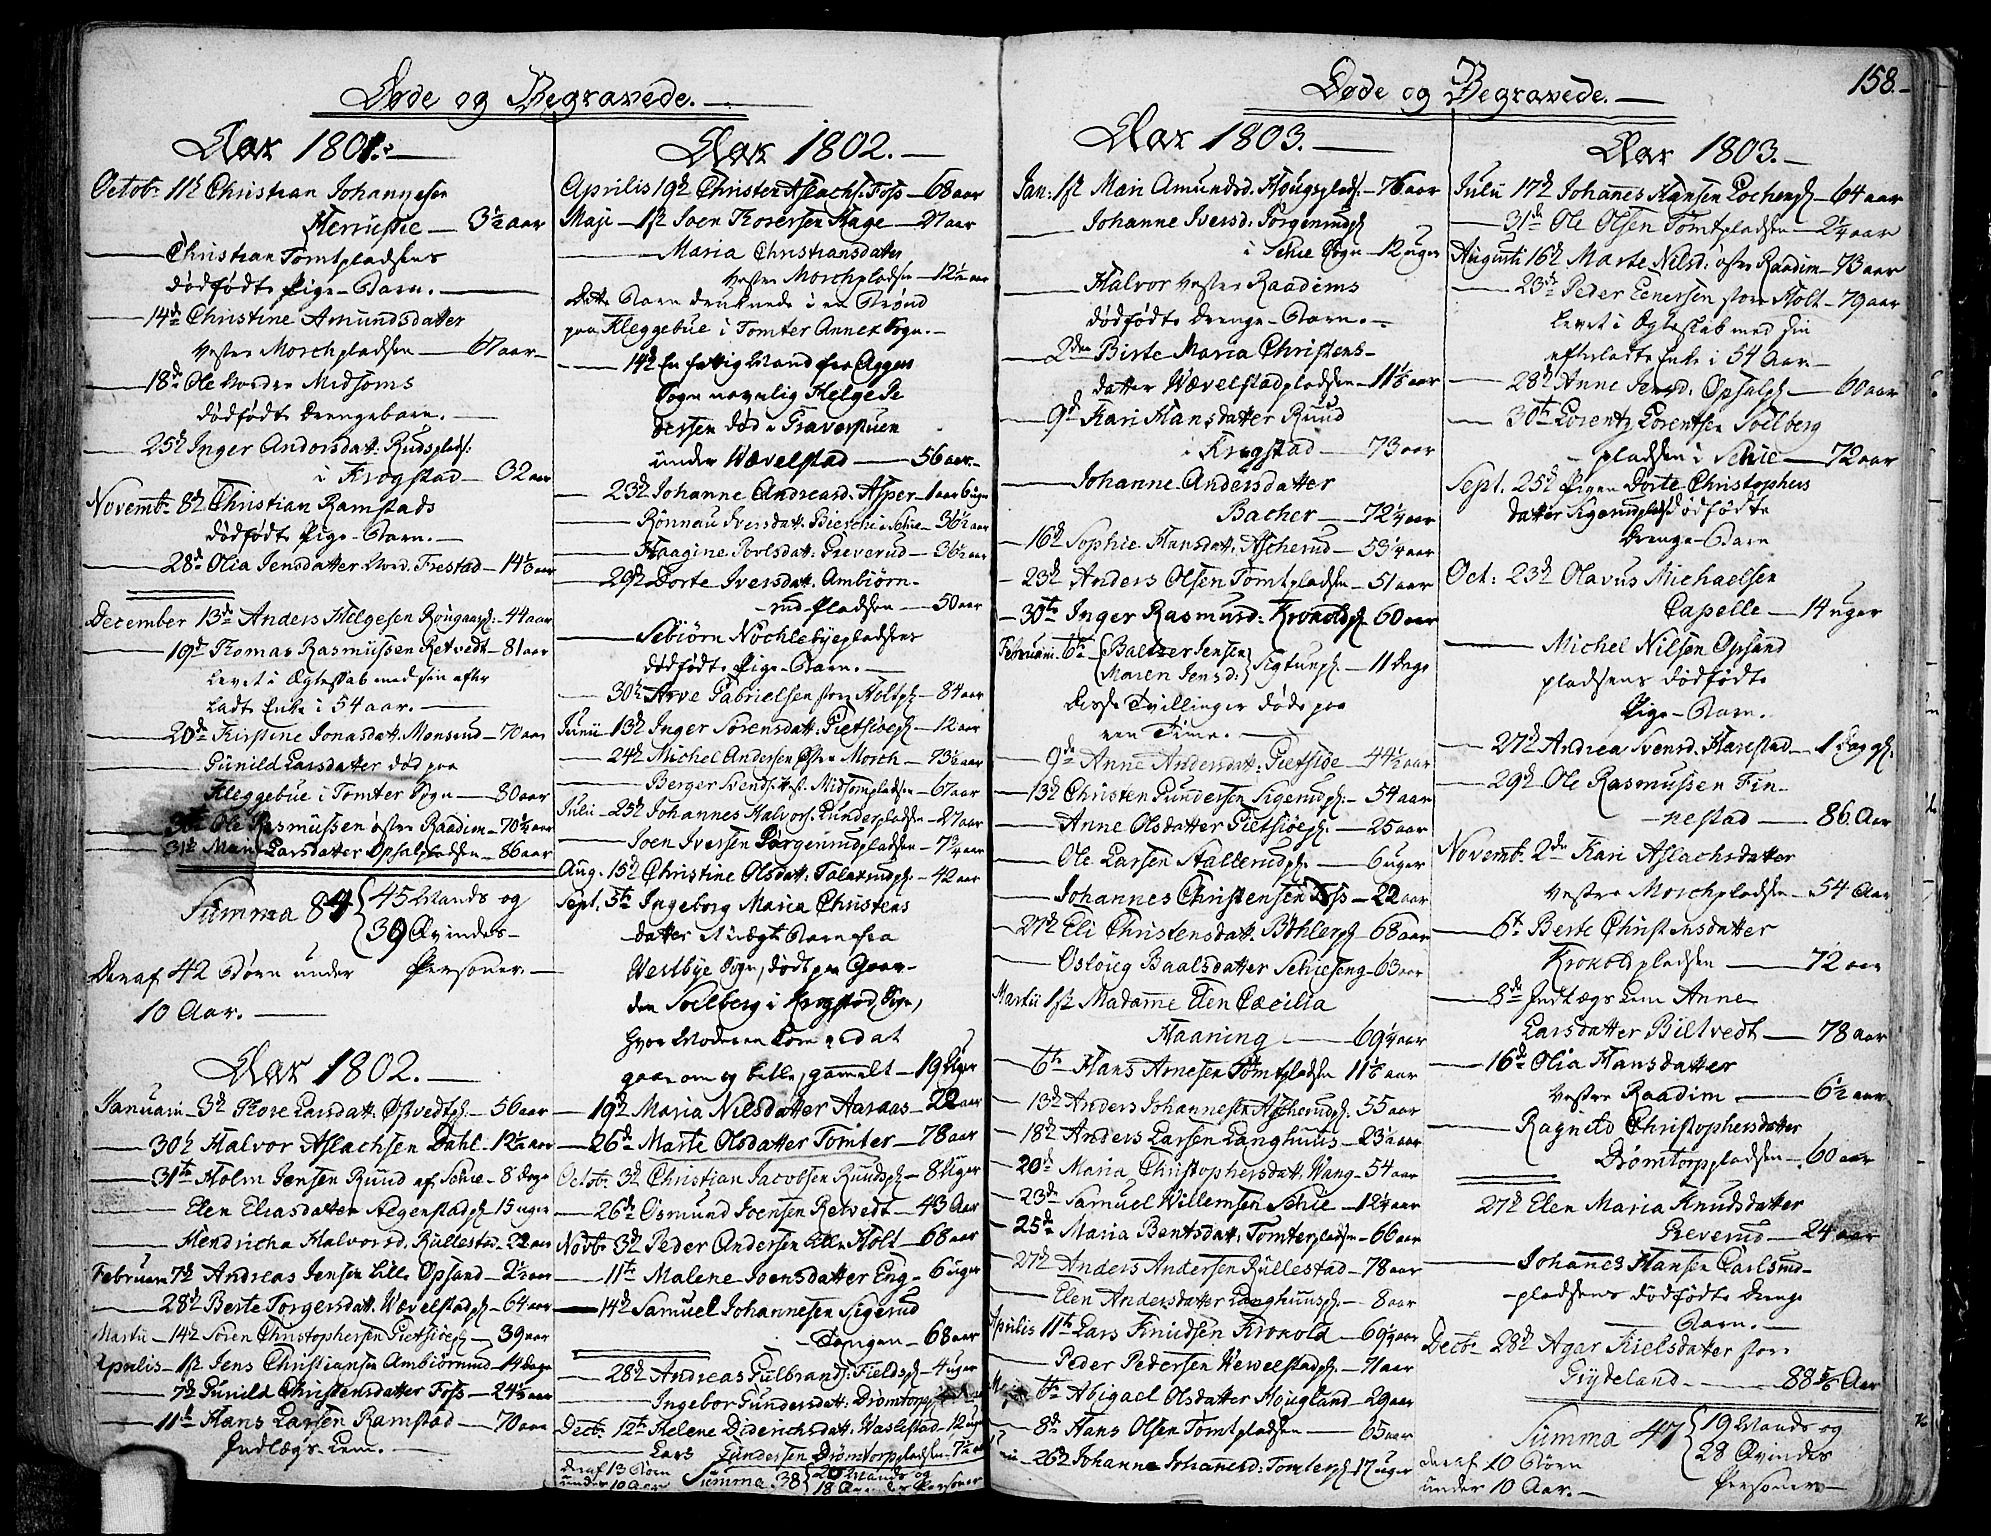 Døde og Begravede.
Aar 1801.
Octob: 11te Christian Johannesen
Herrustie — 3½ aar
Christian Tomtpladsens
dødfødte Pige-Barn.
14de Christine Amundsdatter
Vestre Morchpladsen — 67 aar
18de Ole Nordre Midsoms
dødfødte Drengebarn.
25de Inger Andorsdatt: Rudsplads:
i Krogstad — 32 aar
Novemb: 8de Christian Ramstads
dødfødte Pige-Barn.
28de Olia Jensdatter Nord. Frestad — aar
December 13de Anders Helgesen — 44 aar
19de Thomas Rasmussen Retvedt — 81 aar
Levet i Ægteskab med sin efter
ladte Enke i 54 aar.
20de Kirstine Jonasdatt: Monsrud — 70 aar
Gunild Larsdatter død paa
Kleggebue i Tomter Sogn — 80 aar
30te Ole Rasmussen østre Raadim — 70¼ aar
31te Mari Larsdatter Opsalpladsen — 86 aar
Summa 84 { 45 Mands og
39 Qvindes-
Personer.
Deraf 42 Børn under
10 Aar.
Aar 1802.
Januarii 3de Thore Larsdatt: Østvedtpl: — 56 aar
30te Halvor Aslachsen Dahl — 12½ aar
31te Holm Jensen Ruud af Schie — 8 dage
Elen Eliasdatter Aegerstadpl: 15 uger
Hendricha Halvorsd. Rullestad — 22 aar
Februarii 7de Andreas Jensen Lille Opsand — 2½ aar
28de Berte Torgersdatt: Wævelstadpl: — 64 aar
Martii — 14de Søren Christophersen Gietsiøepl: — 39 aar
Aprilis — 1ste Jens Christiansen Ambiørnrud — 14 dage
7de Gunild Christensdatter Foss — 24½ aar
11te Hans Larsen Ramstad — 70 aar
Indlægs Lem.
Aar 1802.
Aprilis 19de Christen Aslachs: Foss — 68 aar
Maji — 1ste Joen Thorersen Hage — 27 aar
Maria Christiansdatter
Vestre Morchpladsen — 12½ aar
Dette Barn druknede i en Brønd
paa Kleggebue i Tomter Annex Sogn.
14de En fattig Mand fra Aggers
Sogn navnlig Helge Pe
dersen død i Graverstuen
under Wævelstad — 56 aar.
23de Johanne Andreasd: Asper — 1 aar 6 uger
Rønnau Iversdatt: i Schie — 36½ aar
Haagine Povlsdatt: Greverud — 36½ aar
29de Dorte Iversdatt: Ambiørn-
rud-Pladsen — 50 aar
Sebiørn Nochlebyepladsens
dødfødte Pige-Barn.
30te Arve Gabrielsen store Holtpl: — 84 aar
Junii 13de Inger Sørensdatt: Gietsiøepl: — 12 aar
24de Michel Andersen Østre Morch — 73½ aar
Berger Svends: Vest: Midsompladsen — 67 aar
Julii — 25de Johannes Halvors: Lunderpladsen — 27 aar
Joen Iversen Dørgenrudpladsen — 7¾ aar
Aug. 15de Christine Olsdatt: Talerrudpl: — 42 aar
Sept. 5te Ingeborg Maria Christens
datter Uægte Barn fra
Westbye Sogn, død paa Gaar-
den Soelberg i Krogstad Sogn,
hvor Moderen kom ind at
gaae om og betle, gammelt — 19 Uger
19de Maria Nilsdatter Aaraas — 22 aar
26de Marte Olsdatter Tomter — 78 aar
Octob: 3de Christian Jacobsen Ruudspl: — 8 Uger
26de Osmund Joensen Retvedt — 43 Aar
Novbr: 3de Peder Andersen Lille Holt — 68 aar
11te Malene Svensdatter Eng — 6 uger
14de Samuel Johannesen Sigerud
Tangen — 68 aar
28de Andreas Gulbrands: Fieldspl: — 4 uger
Ingebor Gundersdatt: Drømtorp
Decb: 12te Helene Diderichsdatt: Waslestad — 12 uger
Lars Gundersen Drømtorpladsen — 7½ aar
deraf 13 Børn
under 10 Aar
Summa 38 { 20 Mands og
18 Qvindes Personer
Døde og Begravede.
158.
Aar 1803.
Jan: 1ste Mari Amundsd: Hougspladsen — 76 aar
Johanne Iversd: Jørgenrudpl:
i Schie Sogn — 12 uger
Halvor Vestre Raadems
dødfødte Drenge-Barn.
2den Birte Maria Christens-
datter Wævelstadpladsen — aar
9de Kari Hansdatter Ruud
i Krogstad — 73 aar
Johanne Andersdatter
Bacher — 72¼ aar
16de Sophie Hansdatt: Ascherud — 53¼ aar
23de Anders Olsen Tomtpladsen — 51 aar
30te Inger Rasmusd: Krokoldpl: — 60 aar
Februarii 6te { Baltzer Jensen
Maren Jensd: } Sigtunpl: — 11 dage
Disse Tvillinger døde paa
een Time.
9de Anne Andersdatt: Gietsiøe — 44½ aar
13de Christen Gundersen Sigerudpl: — 54 aar
Anne Olsdatter Gietsiøepl: — 25 aar
Ole Larsen Stallerudpl: — 6 uger
Johannes Christensen Foss — 22 aar
27de Eli Christensdatt: Bøhlerpl: — 68 aar
Osloug Baalsdatter Schieseng — 63 aar
Martii 1ste Madame Elen Cæcilia
Haaning — 69¼ aar
6te Hans Arnesen Tomtpladsen aar
13de Anders Johannesen Ascherudpl: 55 aar
18de Anders Larsen Langhuus — 23½ aar
20de Maria Christophersdatt: Wang — 54 aar
23de Samuel Willemsen Schie — 12¼ aar
25de Maria Bentsdatt: Tomterpladsen — 66 aar
27de Anders Andersen Rullestad — 78 aar
Elen Andersdatter Langhuuspl: — 8 aar
Aprilis 11te Lars Knudsen Krokold — 69¼ aar
Peder Pedersen Wewelstadpl: — 71 aar
6te Abigael Olsdatter Hougland — 29 aar
8de Hans Olsen Tomtpladsen — 65 aar
26de Johanne Johannesd: Tomterpl: — 17 uger
Aar 1803.
Julii 17de Johannes Hansen Lochenpl: — 64 aar
31te Ole Olsen Tomtpladsen — 2¼ aar
Augusti 16de Marte Nilsd: østre Raadim — 73 aar
23de Peder Eenersen store Holt — 79 aar
Levet i Ægteskab med sin
efterladte Enke i 54 Aar.
28de Anne Jensd: Opsalpl: — 60 aar
30te Lorentz Lorentsen Soelberg
pladsen i Schie — 72 aar
Sept. 25de Pigen Dorte Christophers
datter Sigerudpladsen dødfødte
Drenge-Barn
Oct: 23de Olavus Michaelsen
Capelle — 14 uger
Michel Nilsen Opsand
pladsens dødfødte
Pige-Barn.
27de Andrea Svensd. Harestad — 1 Dag gl:
29de Ole Rasmussen Fin-
nestad — 86 Aar
Novemb: 2den Kari Aslachsdatter
Vestre Morchpladsen — 54 Aar
6te Berte Christensdatter
Krokoldpladsen — 72 aar
8de Indlægs Lem Anne
Larsdatter Biltvedt — 78 aar
16de Olia Hansdatter
Vestre Raadim — 6½ aar
Ragnild Christophersdatter
Drømtorppladsen — 60 aar
27de Elen Maria Knudsdatter
Greverud — 24 aar
Johannes Hansen Carlsrud-
pladsens dødfødte Drenge
Barn.
Decb: 28de Agar Kielsdatter store
Grydeland — 88 5/6 Aar
Summa 47 { 19 Mands og
28 Qvindes
Personer
deraf 10 Børn
under 10 Aar.